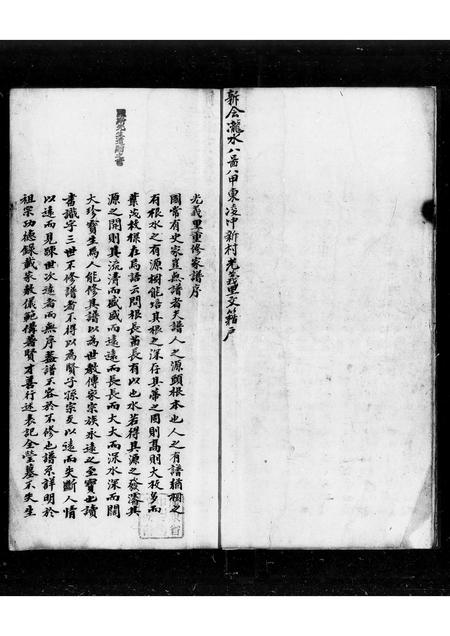 新會瀧水八啚八甲東凌冲新村光義里文籍戶
光義里重修家譜序
國常有史家豈無譜者夫譜人之源頭根本也人之有譜猶樹之
有根水之有源樹能培其根之深存其蒂之固則高則大枝多而
葉茂枝樑在焉語云問根長苗長有以也水若得其源之發濤其
源之開則其流清而盛盛而遠遠而長長而大大而深水深而闊
大珍寶生焉人能修其譜以為世教傳家宗族永遠之至寶也讀
書識字三世不修譜者不得以為賢子孫宗支以遠而失斷人情
以遠而見踈世次遠者而無序盖譜不容於不修也譜系詳明於
祖宗功德錄載家教儀範傳著賢才善行述表記全塋墓不失生